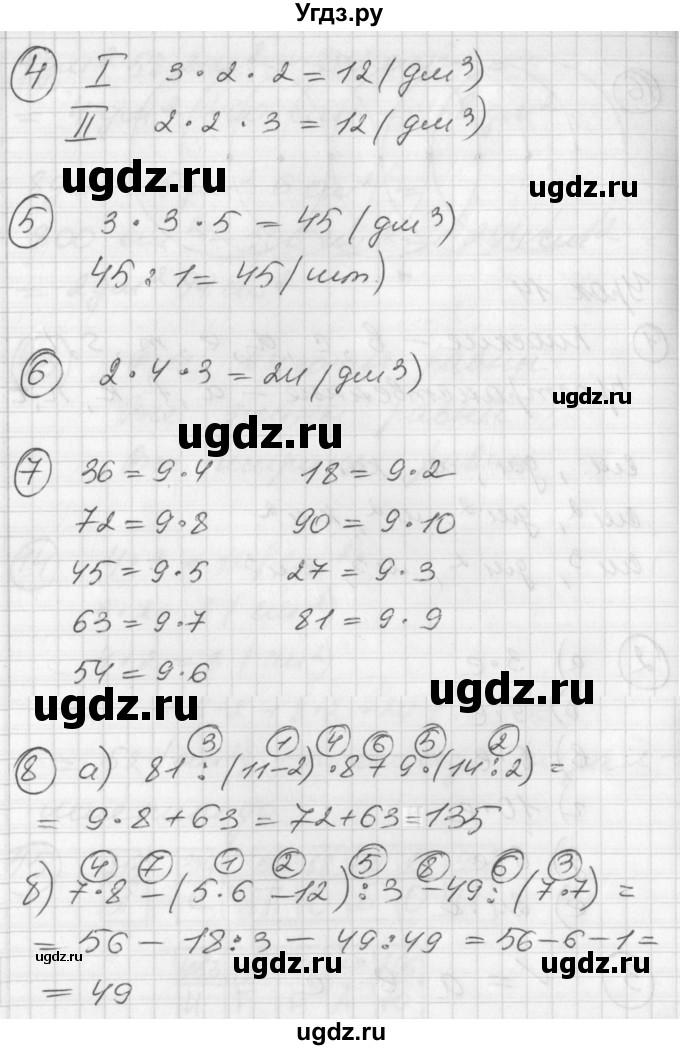 Угдз.ру
4 I 3 · 2 · 2 = 12 (дм³)
II 2 · 2 · 3 = 12 (дм³)
ugdz.ru
ugdz.ru
5 3 · 3 · 5 = 45 (дм³)
45 : 1 = 45 (шт.)
6 2 · 4 · 3 = 24 (дм³)
ugdz.ru
ugdz.ru
7 36 = 9·4 18 = 9·2
72 = 9·8 90 = 9·10
45 = 9·5 27 = 9·3
63 = 9·7 81 = 9·9
54 = 9·6
ugdz.ru
ugdz.ru
3 1 4 6 5 2
8 а) 81 : (11-2) · 8 + 9 · (14:2) =
= 9·8 + 63 = 72+63 = 135
4 7 1 2 5 8 6 3
б) 7·8 – (5·6 – 12) : 3 – 49 : (7·7) =
= 56 – 18:3 – 49:49 = 56-6-1 =
ugdz.ru
ugdz.ru
ugdz.ru
= 49
ugdz.ru